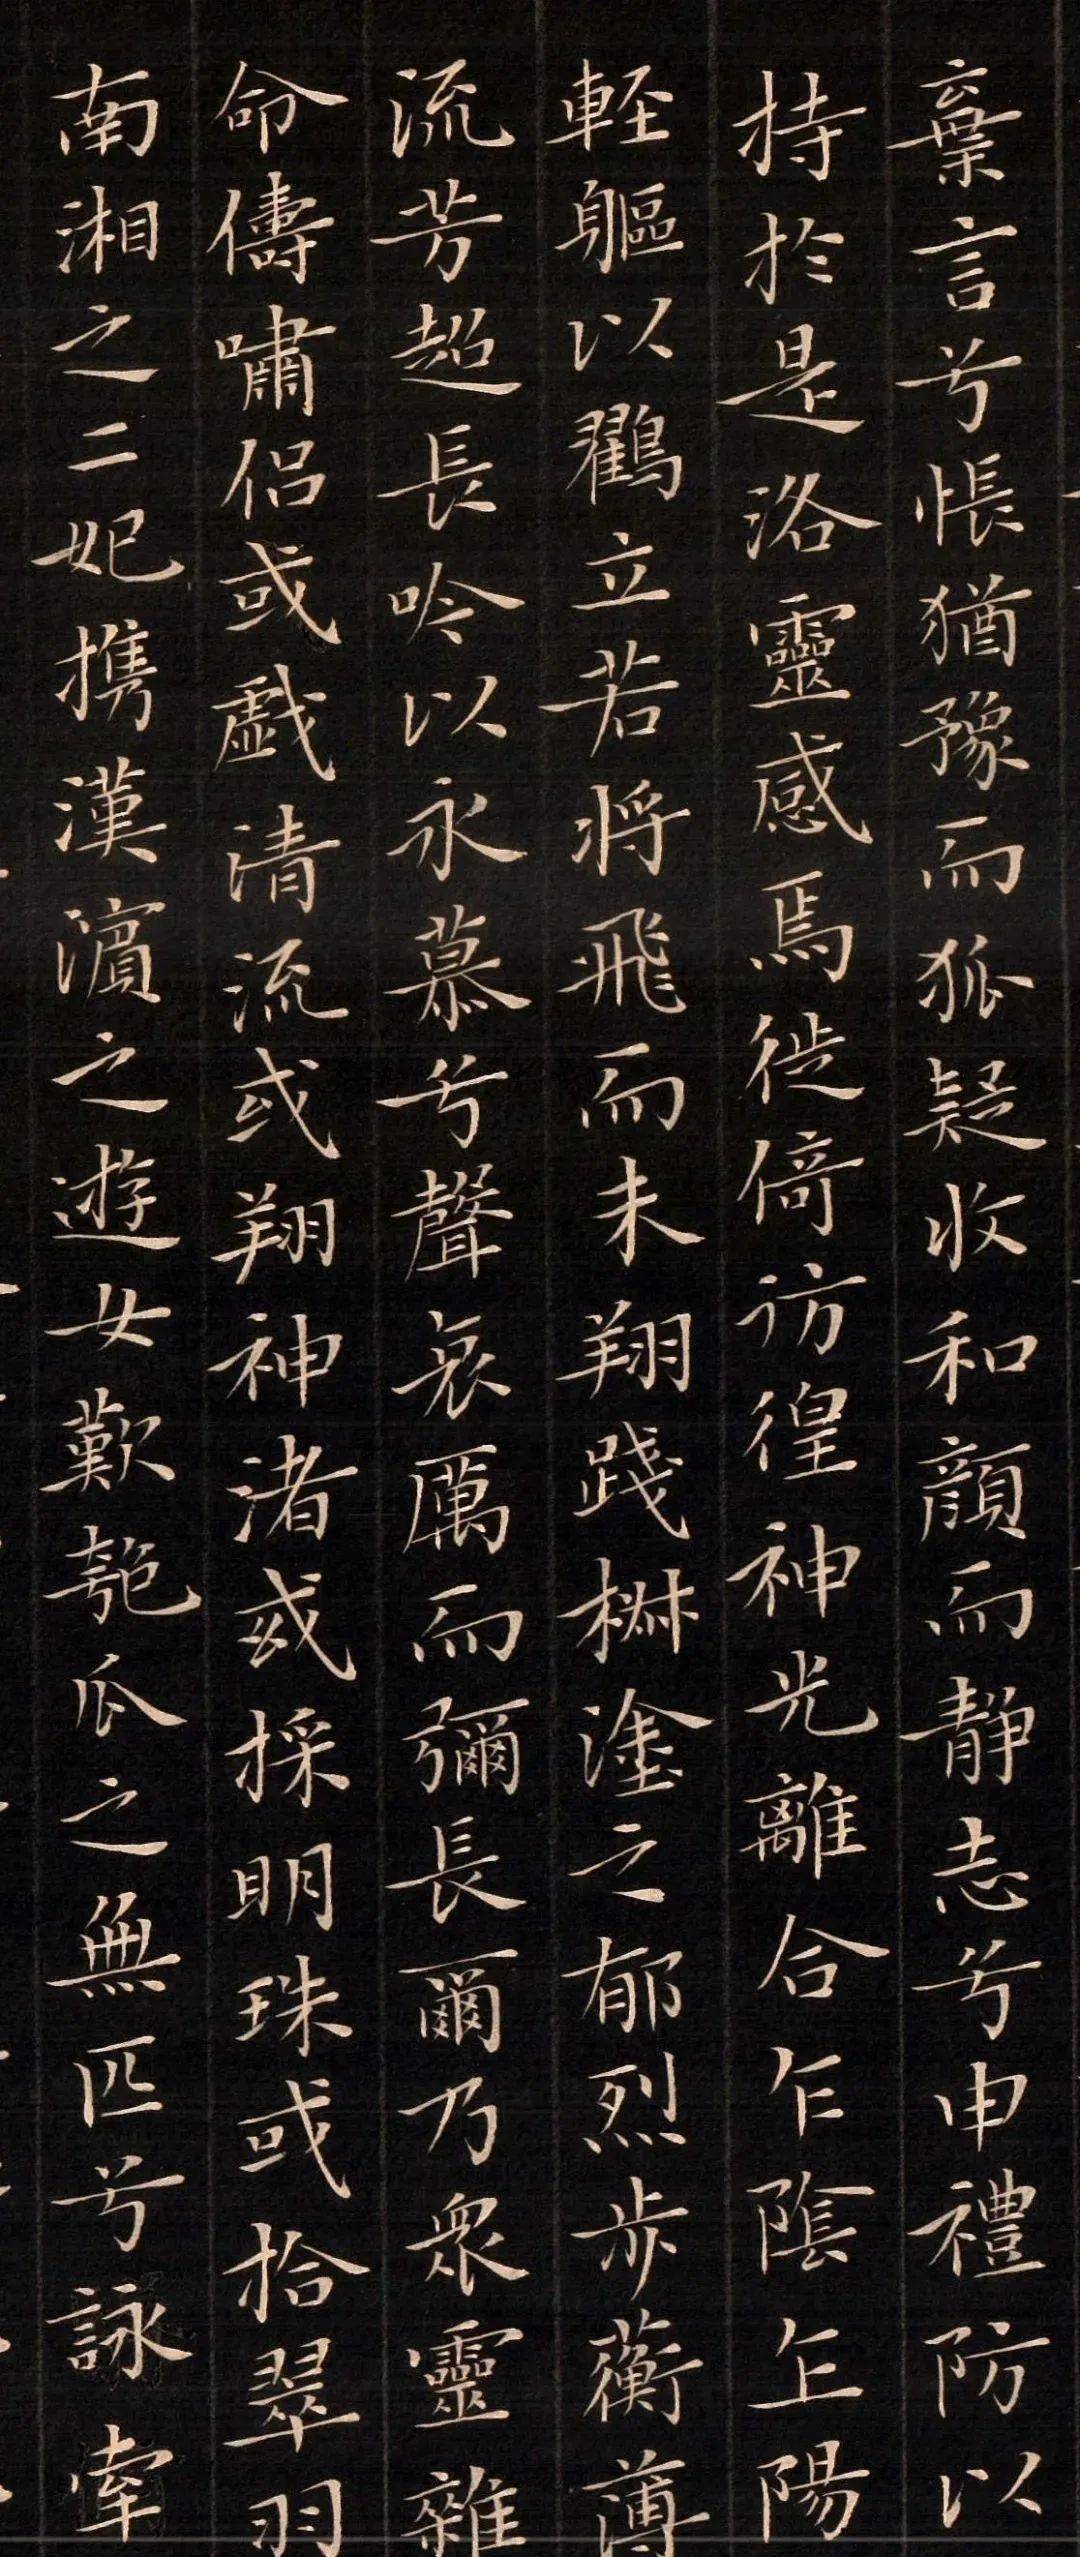 棄言兮悵猶豫而狐疑收和顏而靜志兮申禮防以
持於是洛靈感焉徙倚彷徨神光離合乍陰乍陽
軽軀以鶴立若将飛而未翔踐椒塗之郁烈步蘅薄
流芳超長吟以永慕兮聲哀厲而彌長爾乃眾靈雜
命儔嘯侶或戯清流或翔神渚或採明珠或拾翠羽
南湘之二妃携漢濱之遊女歎匏瓜之無匹兮詠牽